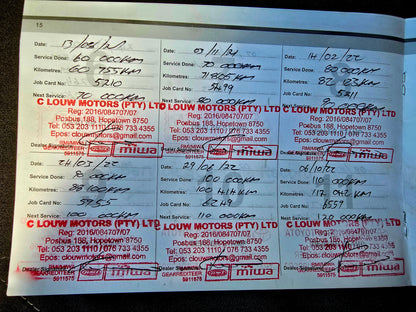 15
Date: 13/08/21
Service Done: 60 000KM
Kilometres: 60 755KM
Job Card No: 5210
Next Service: 70 000KM
C LOUW MOTORS (PTY) LTD
Reg: 2016/084707/07
Posbus 188, Hopetown 8750
Tel: 053 203 1110 / 076 733 4355
Epos: clouwmotors@gmail.com
miwa
5911875
Date: 03/11/21
Service Done: 70 000KM
Kilometres: 71805KM
Job Card No:
Next Service: 80 000KM
C LOUW MOTORS (PTY) LTD
Reg: 2016/084707/07
Posbus 188, Hopetown 8750
Tel: 053 203 1110 / 076 733 4355
Epos: clouwmotors@gmail.com
miwa
5911875
Date: 14/02/22
Service Done: 80 000KM
Kilometres: 82 123KM
Job Card No:
Next Service: 90 000KM
C LOUW MOTORS (PTY) LTD
Reg: 2016/084707/07
Posbus 188, Hopetown 8750
Tel: 053 203 1110 / 076 733 4355
Epos: clouwmotors@gmail.com
miwa
5911875
Date:
Service Done:
Kilometres:
Job Card No: 5955
Next Service: 100 000KM
C LOUW MOTORS (PTY) LTD
Reg: 2016/084707/07
Posbus 188, Hopetown 8750
Tel: 053 203 1110 / 076 733 4355
Epos: clouwmotors@gmail.com
Dealer
GEARREGTER
miwa
5911875
Date: 29/06/22
Service Done: 100 000KM
Kilometres: 100 414KM
Job Card No: 6249
Next Service: 110 000KM
C LOUW MOTORS (PTY) LTD
Reg: 2016/084707/07
Posbus 188, Hopetown 8750
Tel: 053 203 1110 / 076 733 4355
Epos: clouwmotors@gmail.com
miwa
5911875
Date: 06/10/22
Service Done: 110 000KM
Kilometres: 117 042KM
Job Card No: 6557
Next Service: 120 000KM
C LOUW MOTORS (PTY) LTD
Reg: 2016/084707/07
Posbus 188, Hopetown 8750
Tel: 053 203 1110 / 076 733 4355
Epos: clouwmotors@gmail.com
miwa
5911875